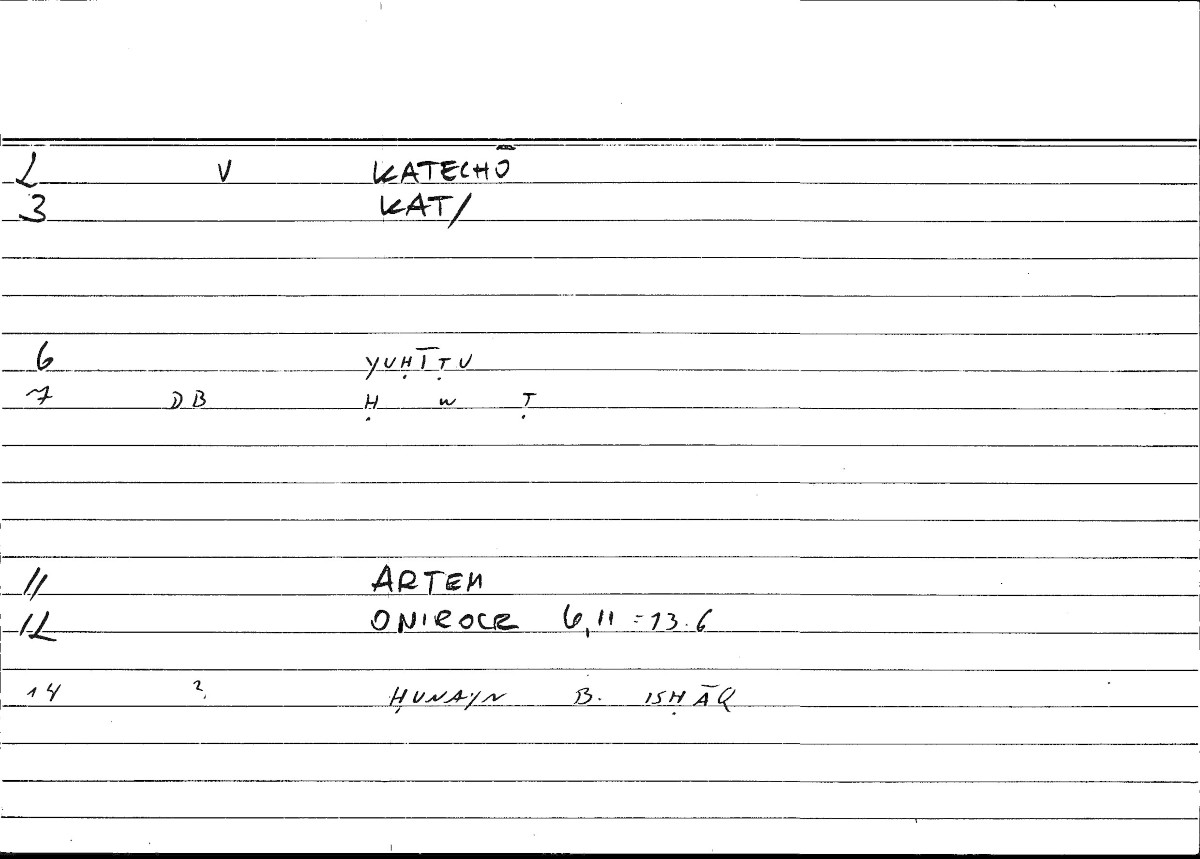 2 V KATECHŌ
3 KAT/
6 YUḤĪṬU
7 DB Ḥ W Ṭ
11 ARTEM
12 ONIROCR 6,11 = 13.6
14 ? ḤUNAYN B. ISḤĀQ